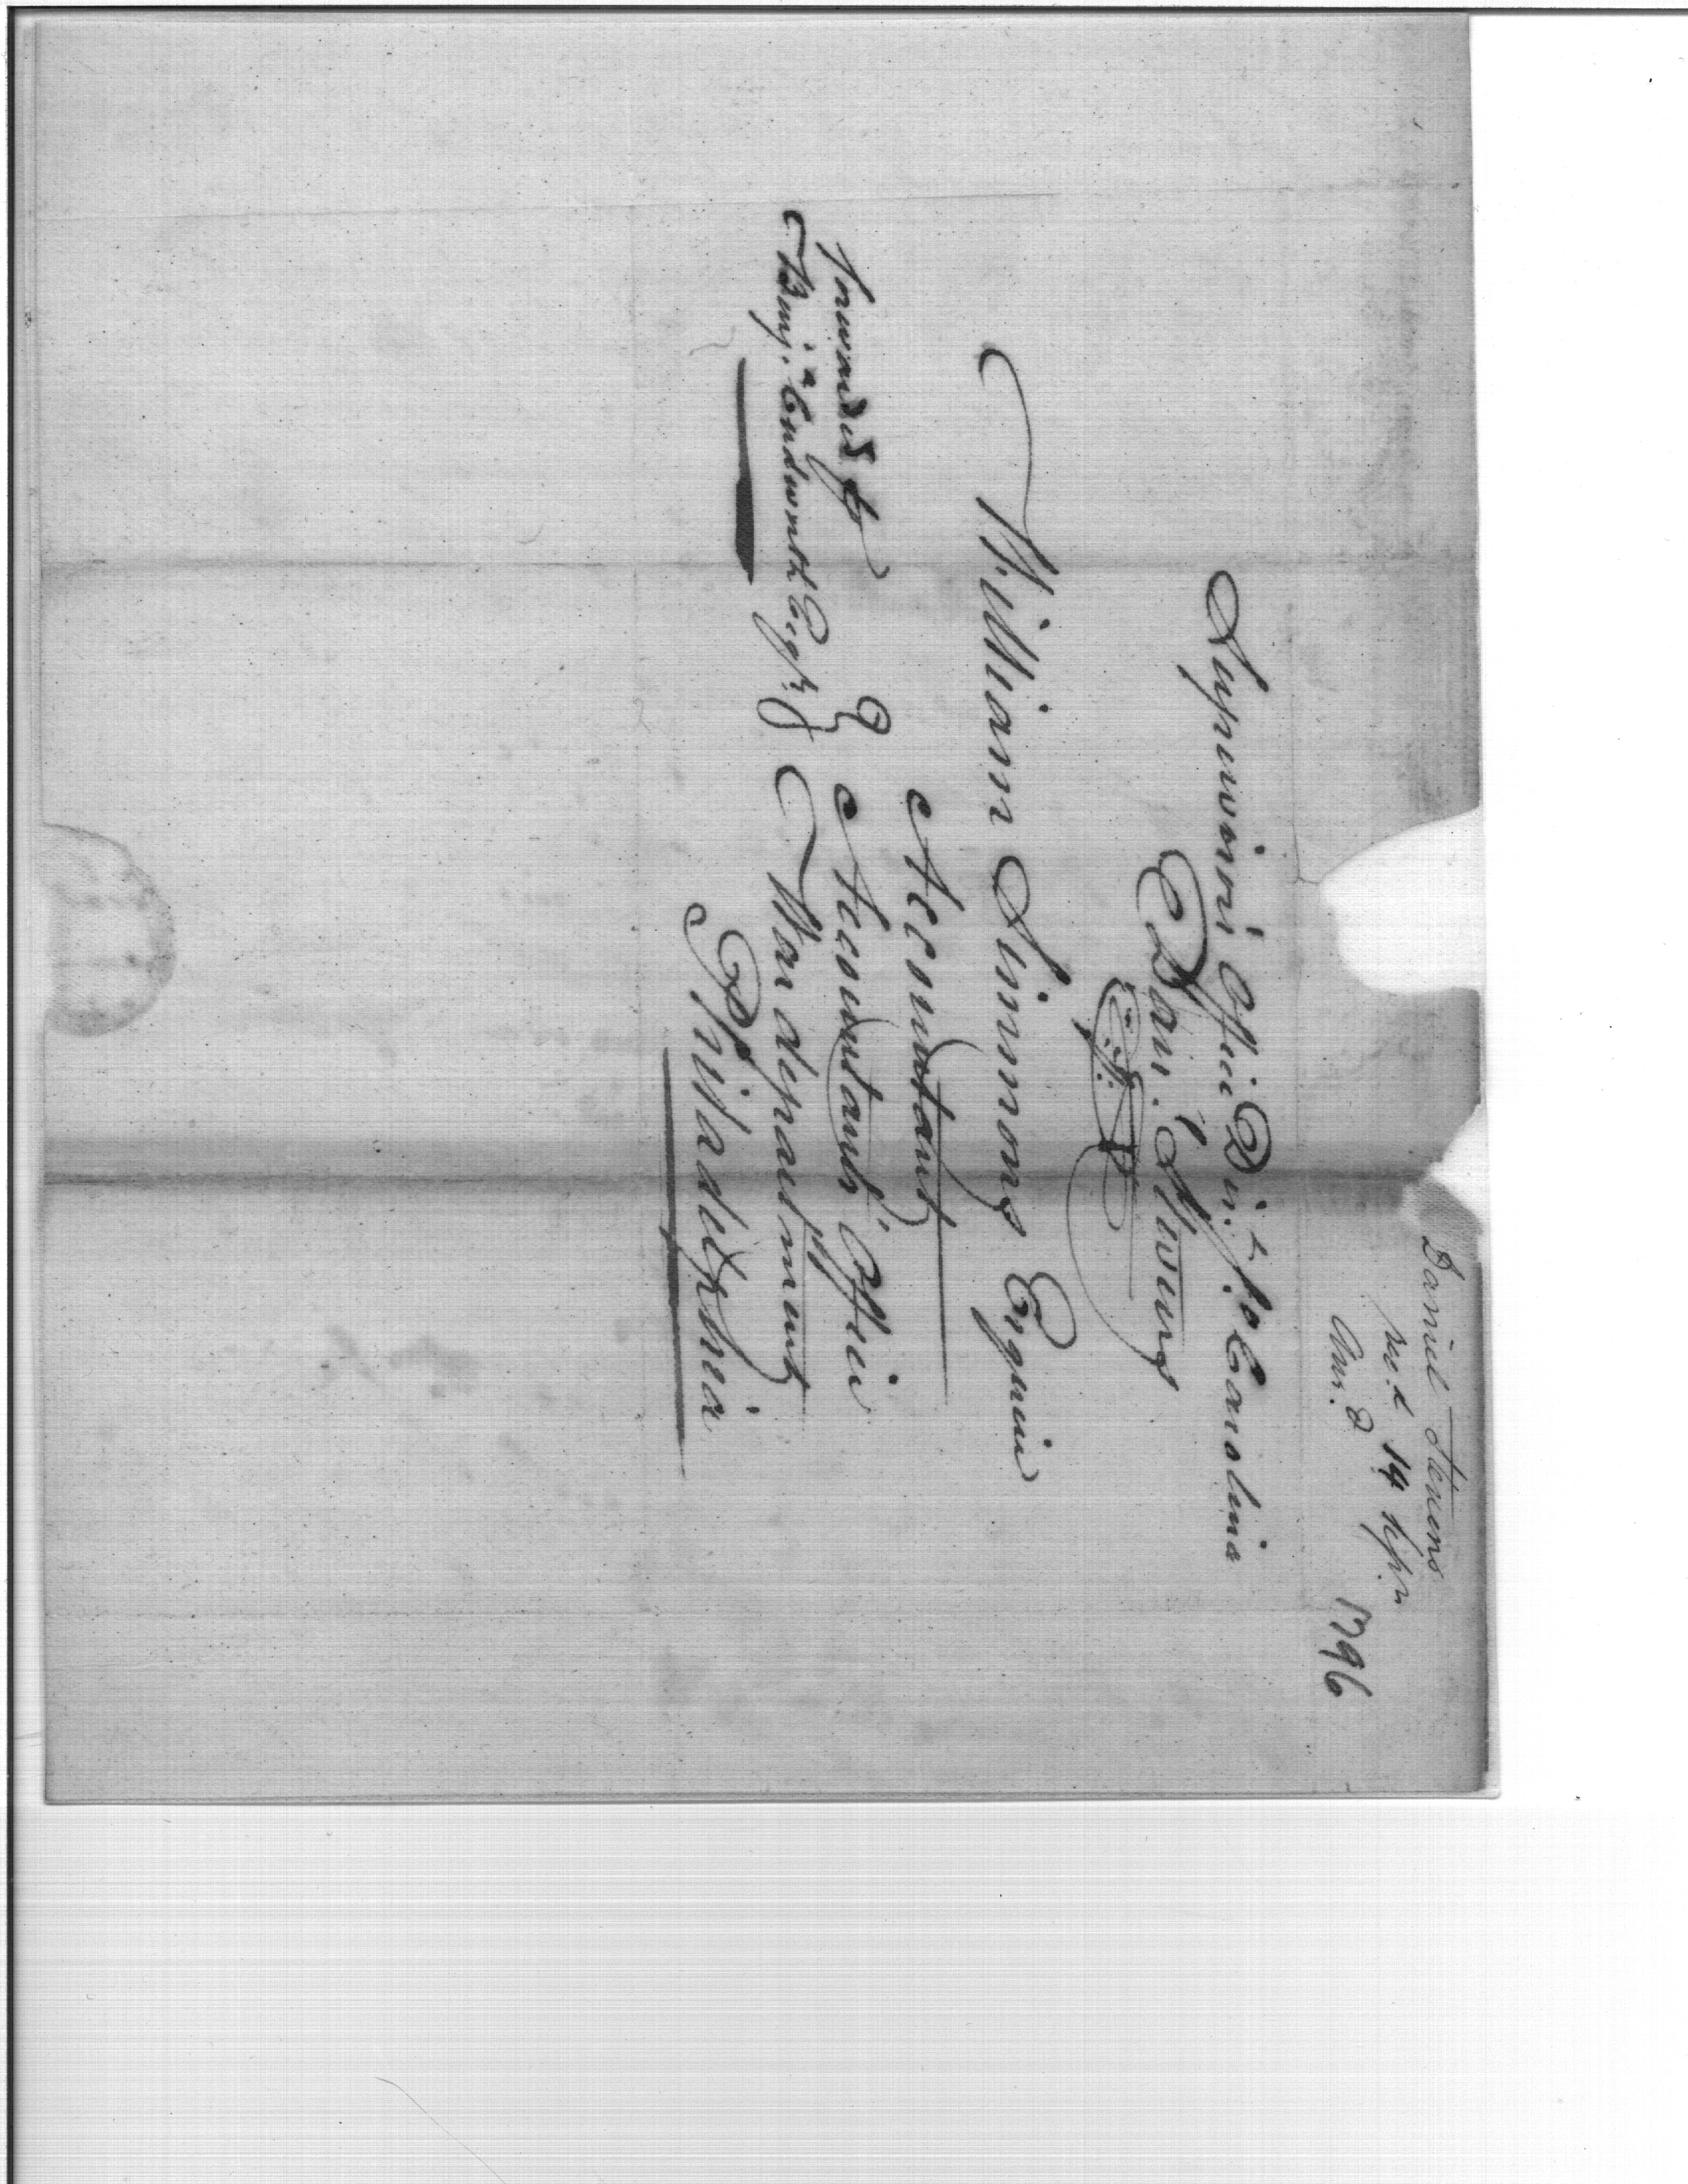 Daniel Stevens
rec.d 14 Sep.r
Ans.d
1796
Supervisors Office Dis.t So Carolina
Dan.l Stevens
William Simmons Esquire
Accountant
Accountants Office
War department
Philadelphia
forwarded by
Benj.a Cudworth Esqr.